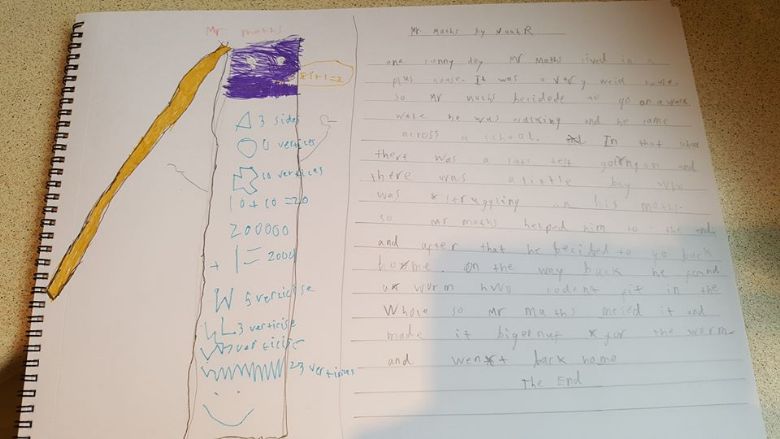 Mr maths
1+1=2
3 sides
0 vertices
10 vertices
10+10=20
200000
+ 1 = 2000
W 5 verticise
3 verticise
verticise
23 vertisises
Mr maths by NoahR
one sunny day Mr Maths lived in a
plus house. It was a very weid house.
so Mr maths decidede to go on a walk
wale he was walking and he came
across a school. In that school
there was a test going on and
there was a little boy who
was struggling on his maths
so mr maths helped him to the end
and after that he decided to go back
home. On the way back he found
a wurm howo codent fit in the
Whole so Mr Maths and
made it bigernuf for the werm
and went back home
The End